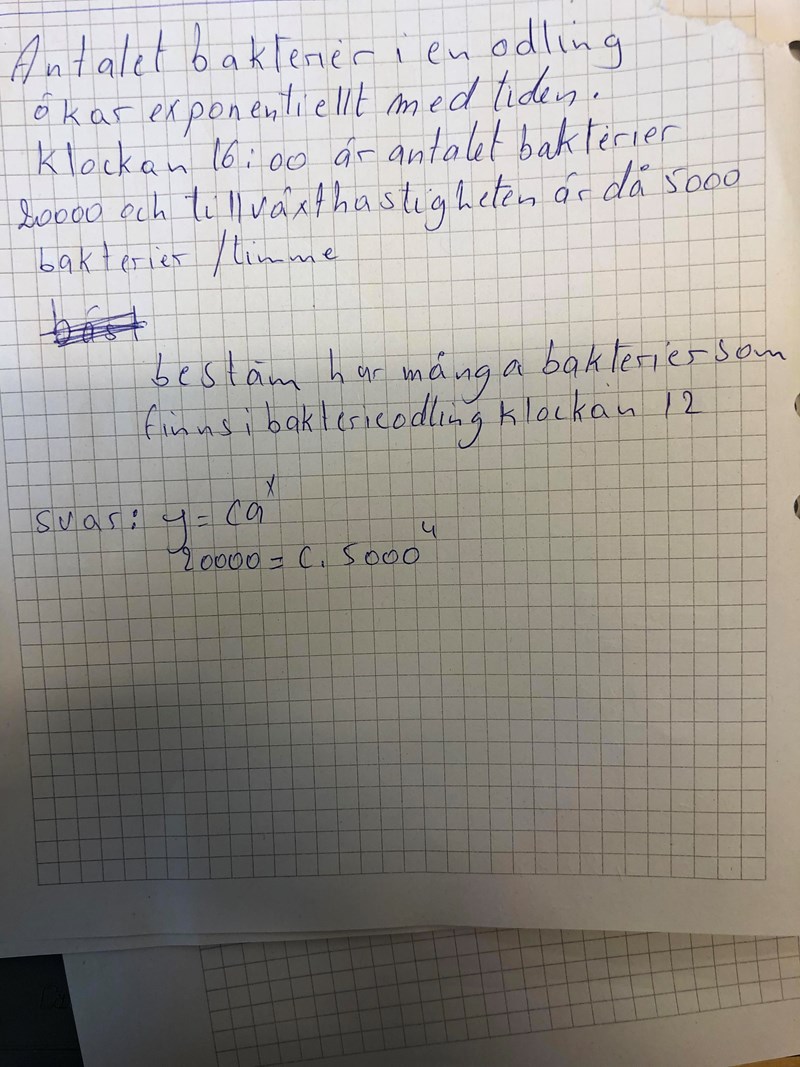 Antalet bakterier i en odling
ökar exponentiellt med tiden.
klockan 16:00 är antalet bakterier
20000 och tillväxthastigheten är då 5000
bakterier /timme
bestäm hur många bakterier som
finns i bakterieodling klockan 12
svar: y = Ca^x
20000 = C. 5000^4